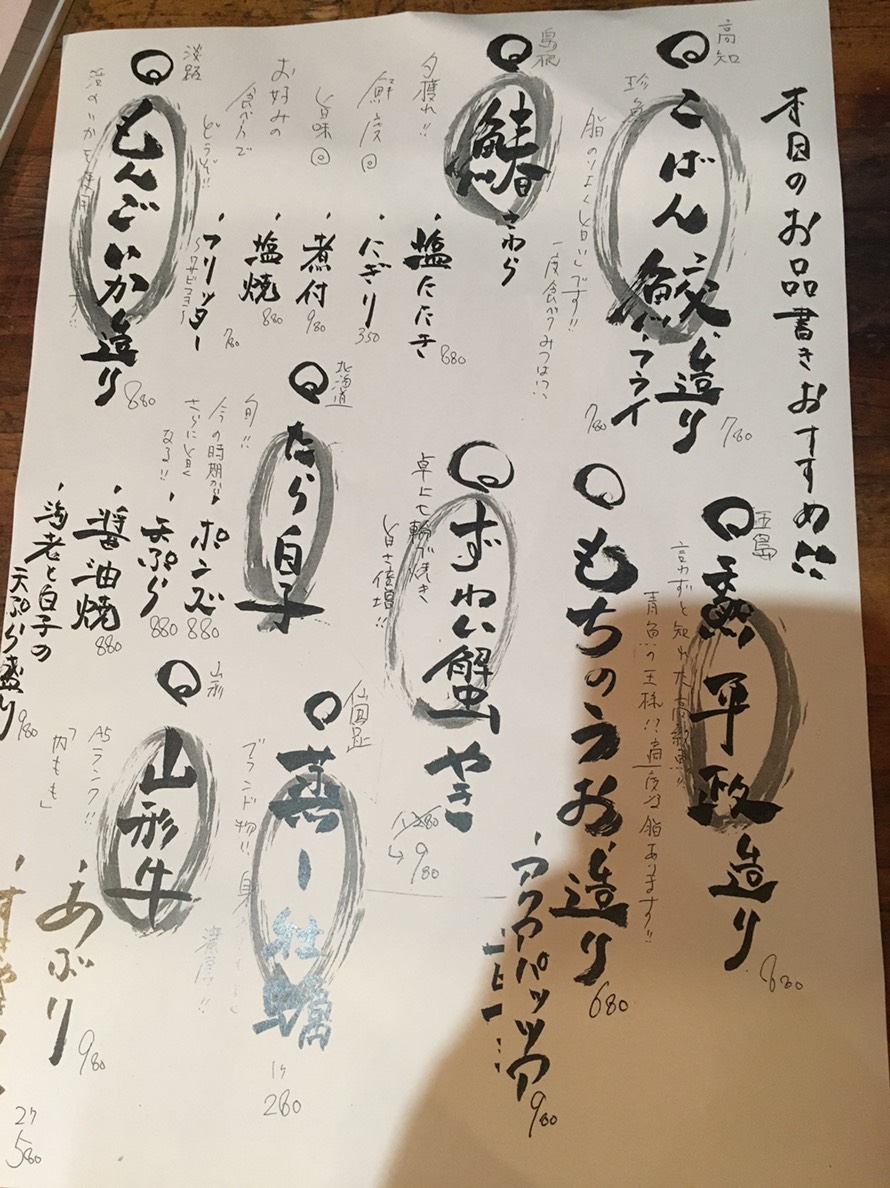 本日のお品書きおすすめ!!
高知
こばん鮫造り
780
フライ
780
珍魚!!
脂のりよく旨いです!!
島根
鰆
さわら
夕獲れ!!
鮮度◎
旨味◎
お好みの
食べ方で
どうぞ!!
・塩たたき
880
・にぎり
350
・煮付
980
・塩焼
880
・フリッター
780
淡路
もんごいか造り
880
五島
平政造り
言わずと知れた高級魚!!
もちのうお造り
680
・アクアパッツア
980
ずわい蟹やき
卓上七輪で焼き
旨さ倍増!!
1,280
↳980
北海道
たら白子
旬!!
今の時期から
さらに旨く
なる!!
・ポンズ
880
・天ぷら
880
・醤油焼
880
・海老と白子の
天ぷら盛り
980
蒸し牡蠣
ブランド物!!
濃厚!!
1ケ
280
山形
山形牛
A5ランク!!
「内もも」
・あぶり
980
2ケ
580